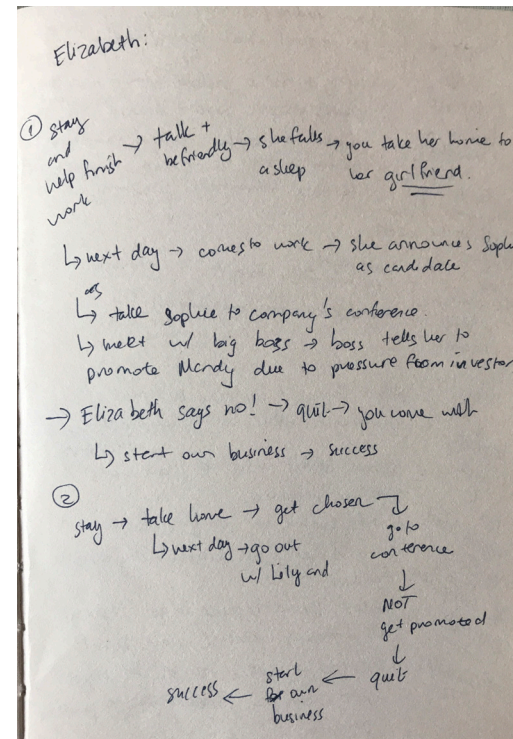 Elizabeth:
① stay and help finish work → talk + be friendly → she falls asleep → you take her home to her girlfriend.
↳ next day → comes to work → she announces Soph
as candidate
↳ take Sophie to company's conference.
↳ meet w/ big boss → boss tells her to
promote Mandy due to pressure from investor
→ Elizabeth says no! → quit → you come with
↳ start own business → success
②
stay → take home → get chosen
↳ next day → go out
w/ Lily and
go to
conference
↓
NOT
get promoted
↓
quit
← start
own
business
← success